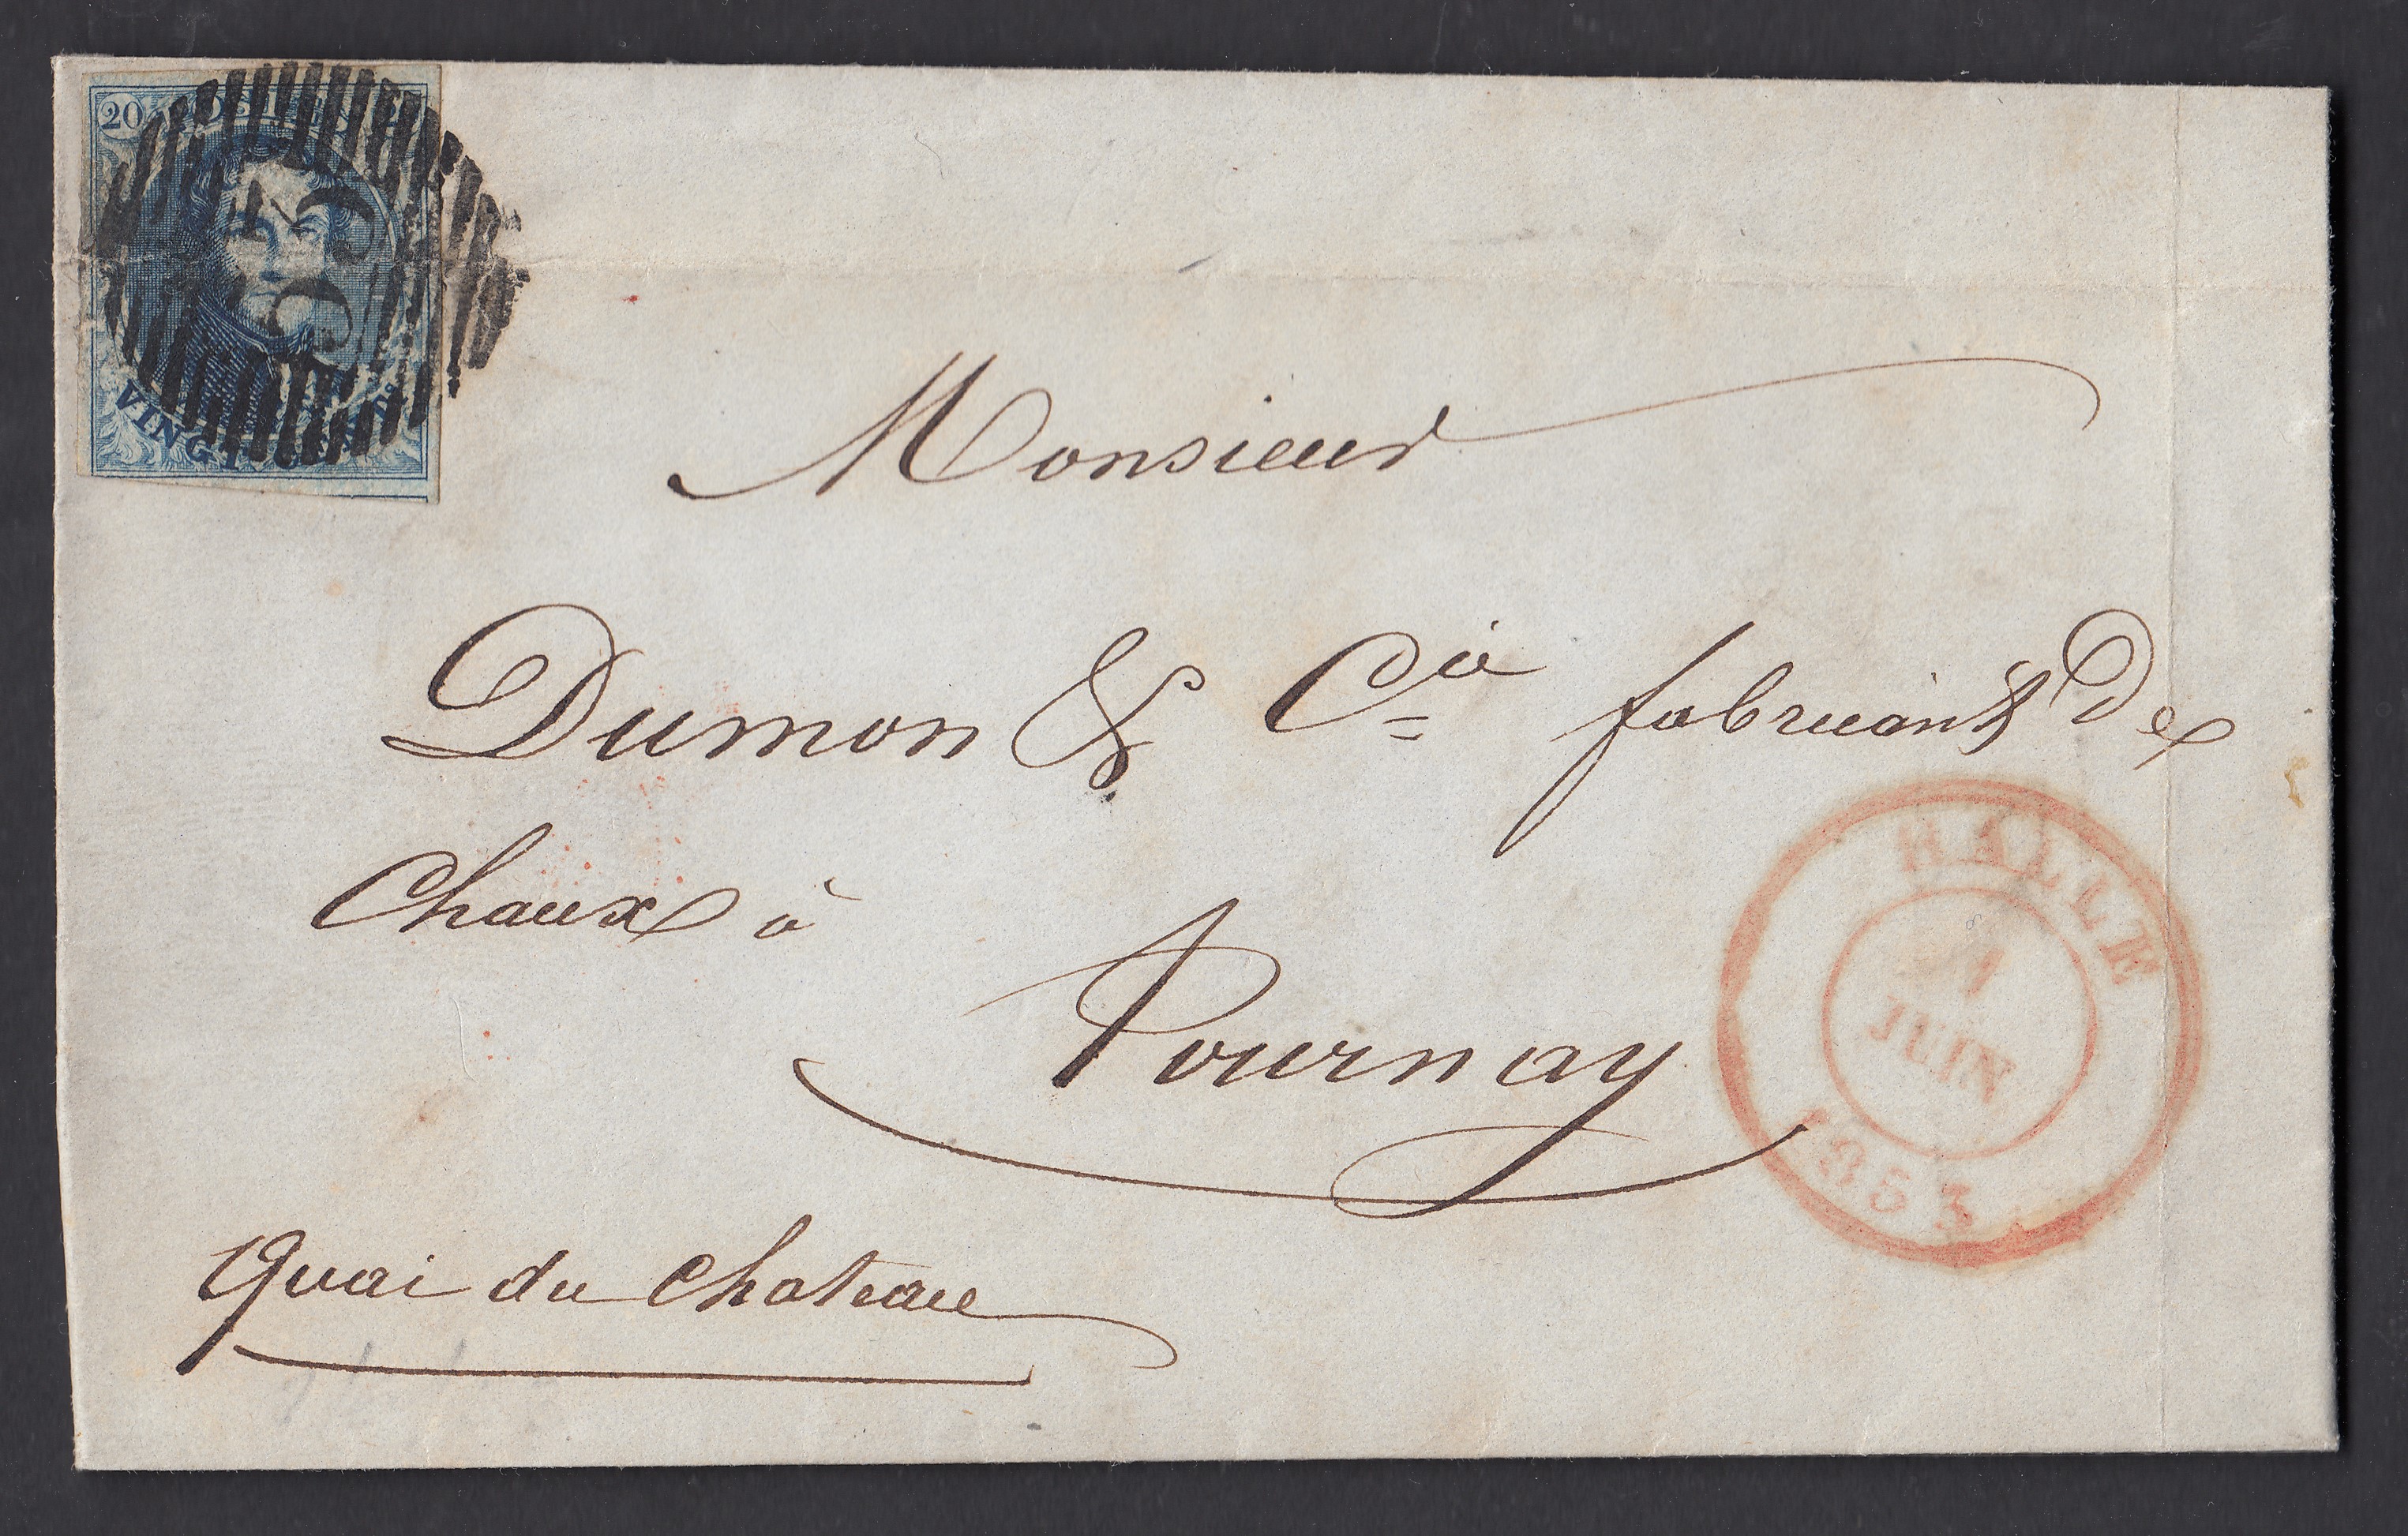 20
VINGT
Monsieur
Dumon & Cie fabricants de
Chaux à
Tournay
Quai du Chateau
HALLE
JUIN
1853